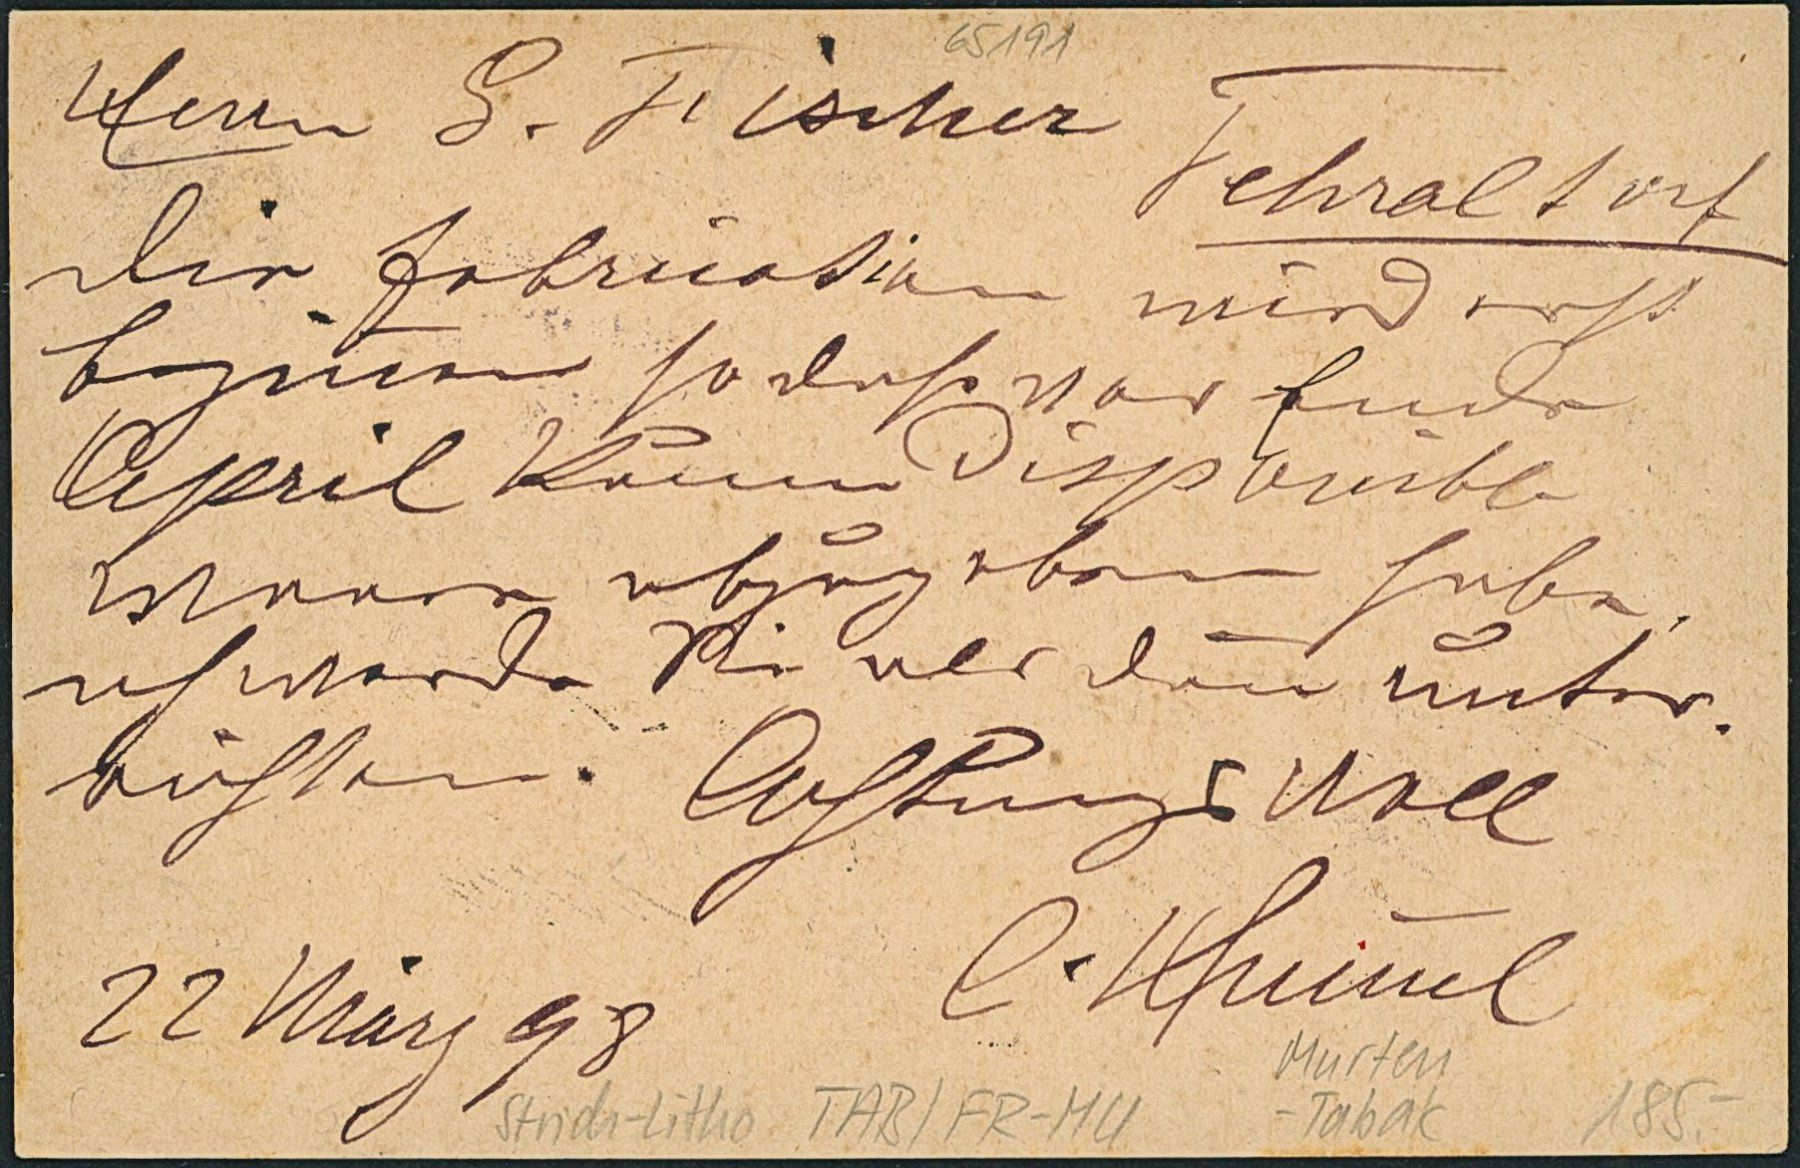 65191
Herrn G. Fischer
Fehraltorf
Die Fabrication wird erst
beginnen so dass vor Ende
April kaum Disponible
Waare abzugeben habe,
ich werde Sie aber dann unter-
richten. Achtungsvoll
C.
22 März 98
Strich-Litho TAB/FR-MU
Murten
-Tabak
185.-